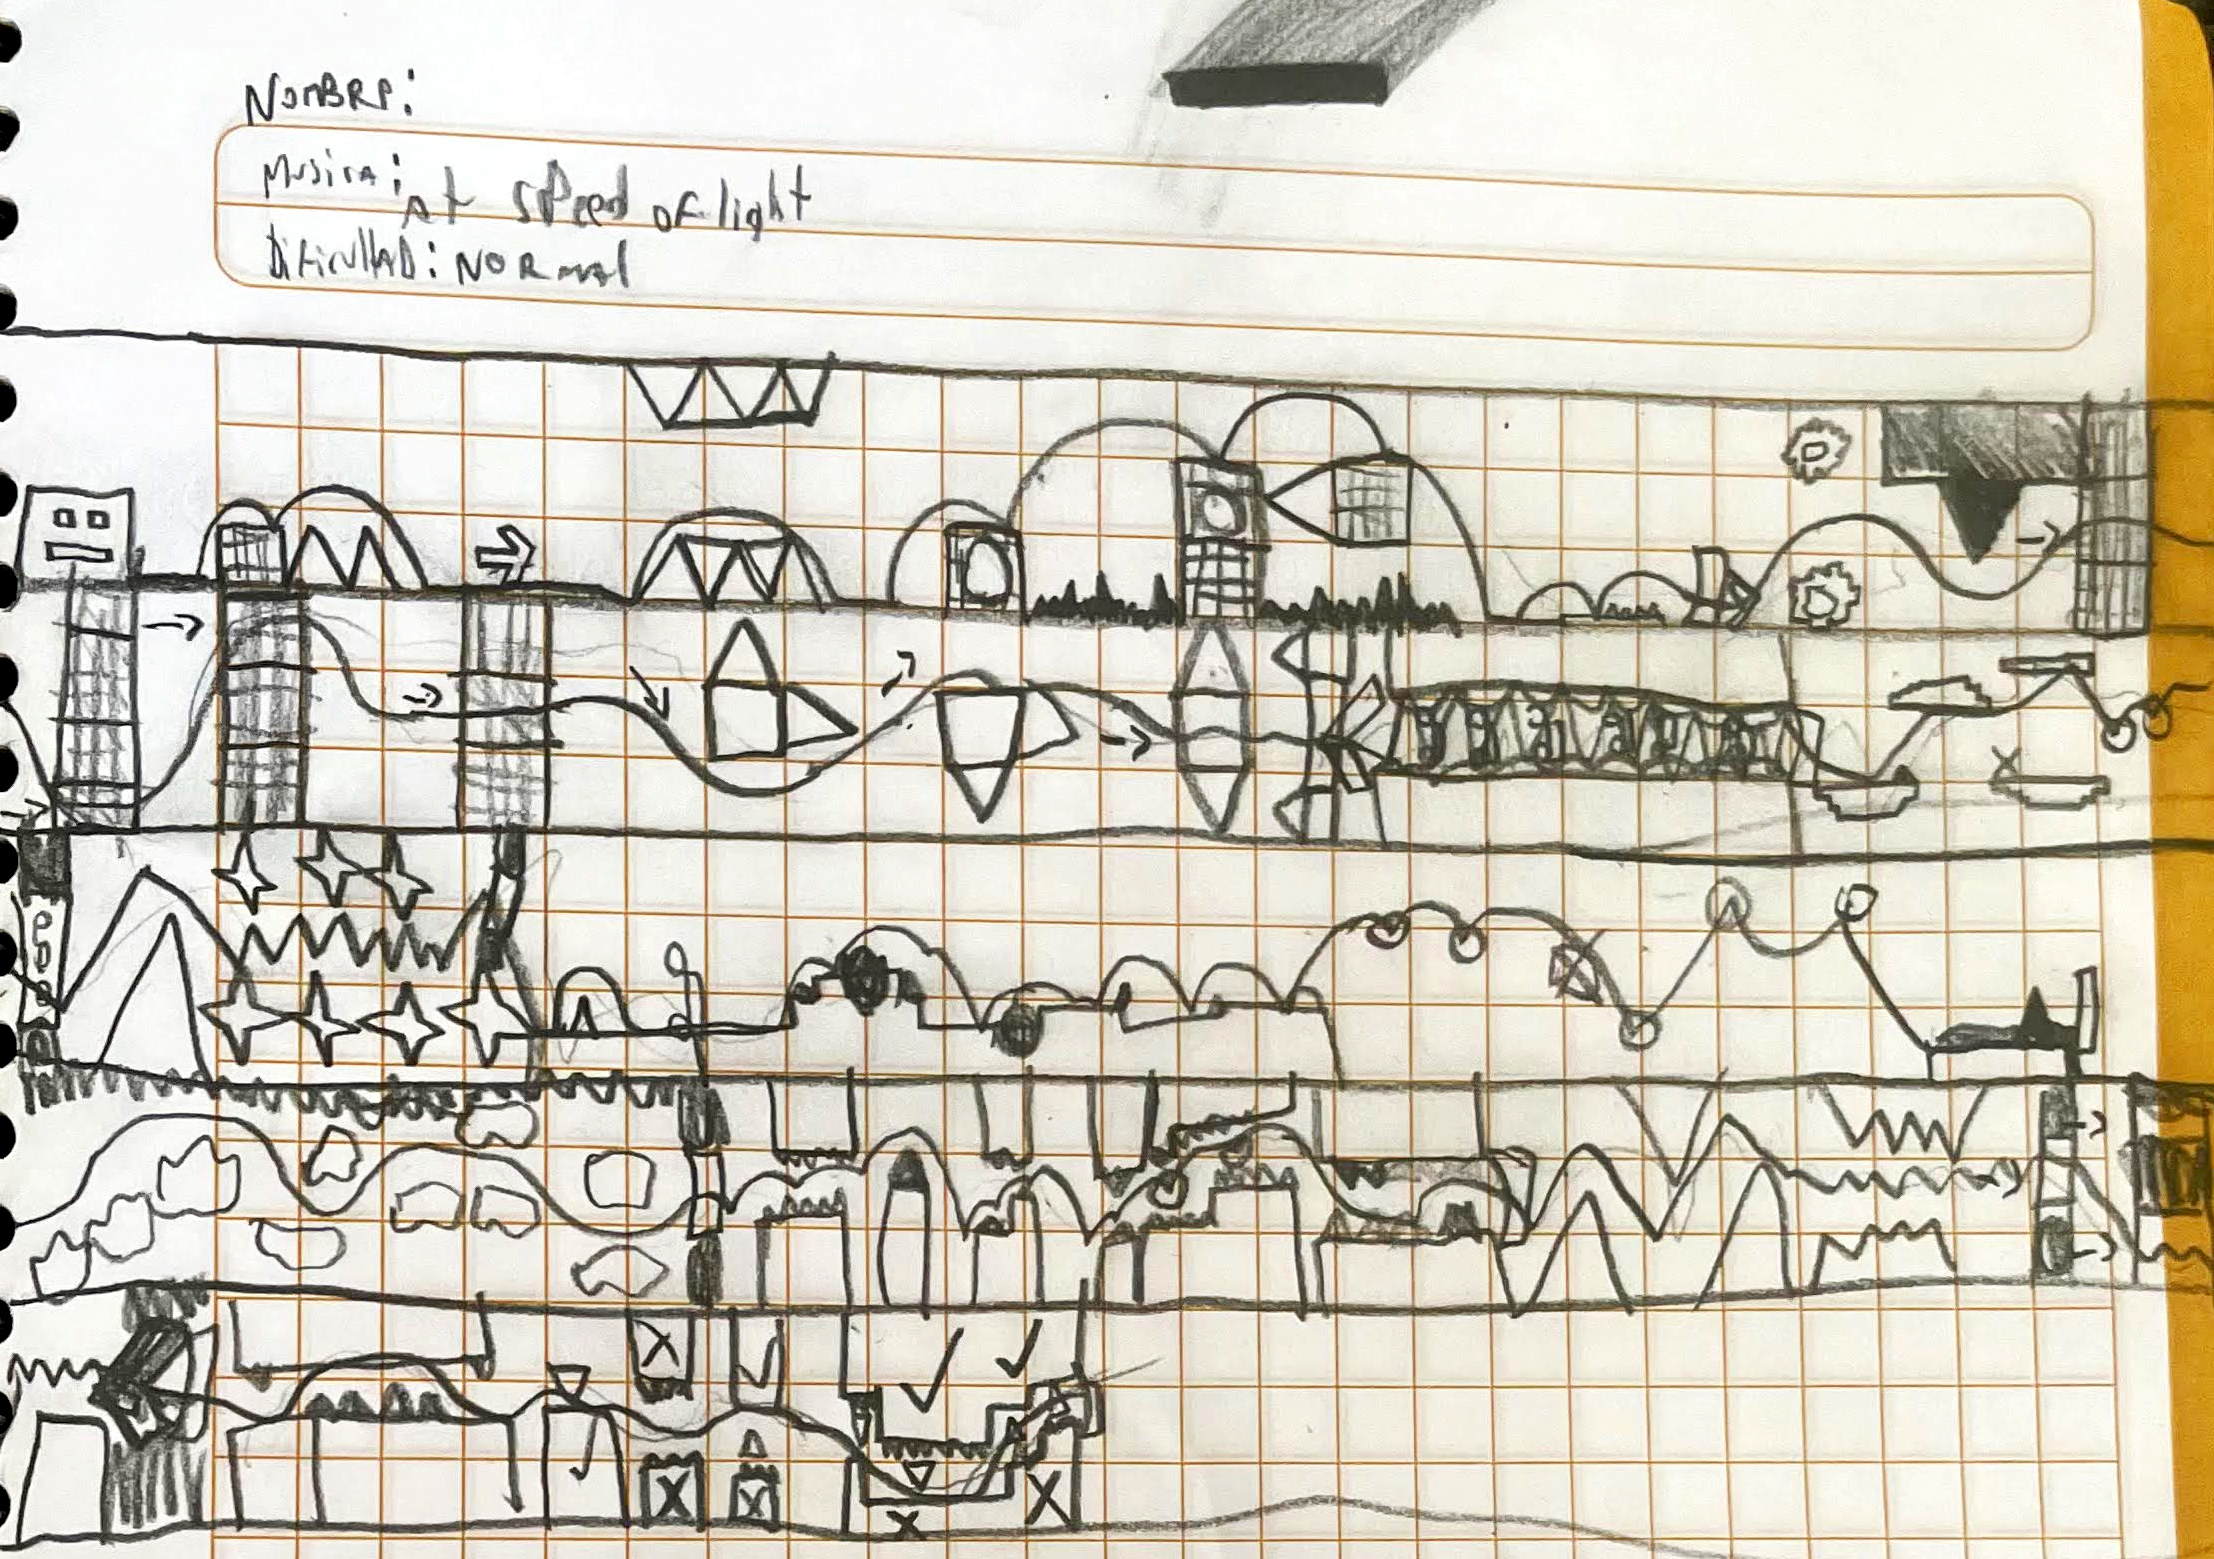 NOMBRe:
Musica: At speed of light
Dificultad: NORmal